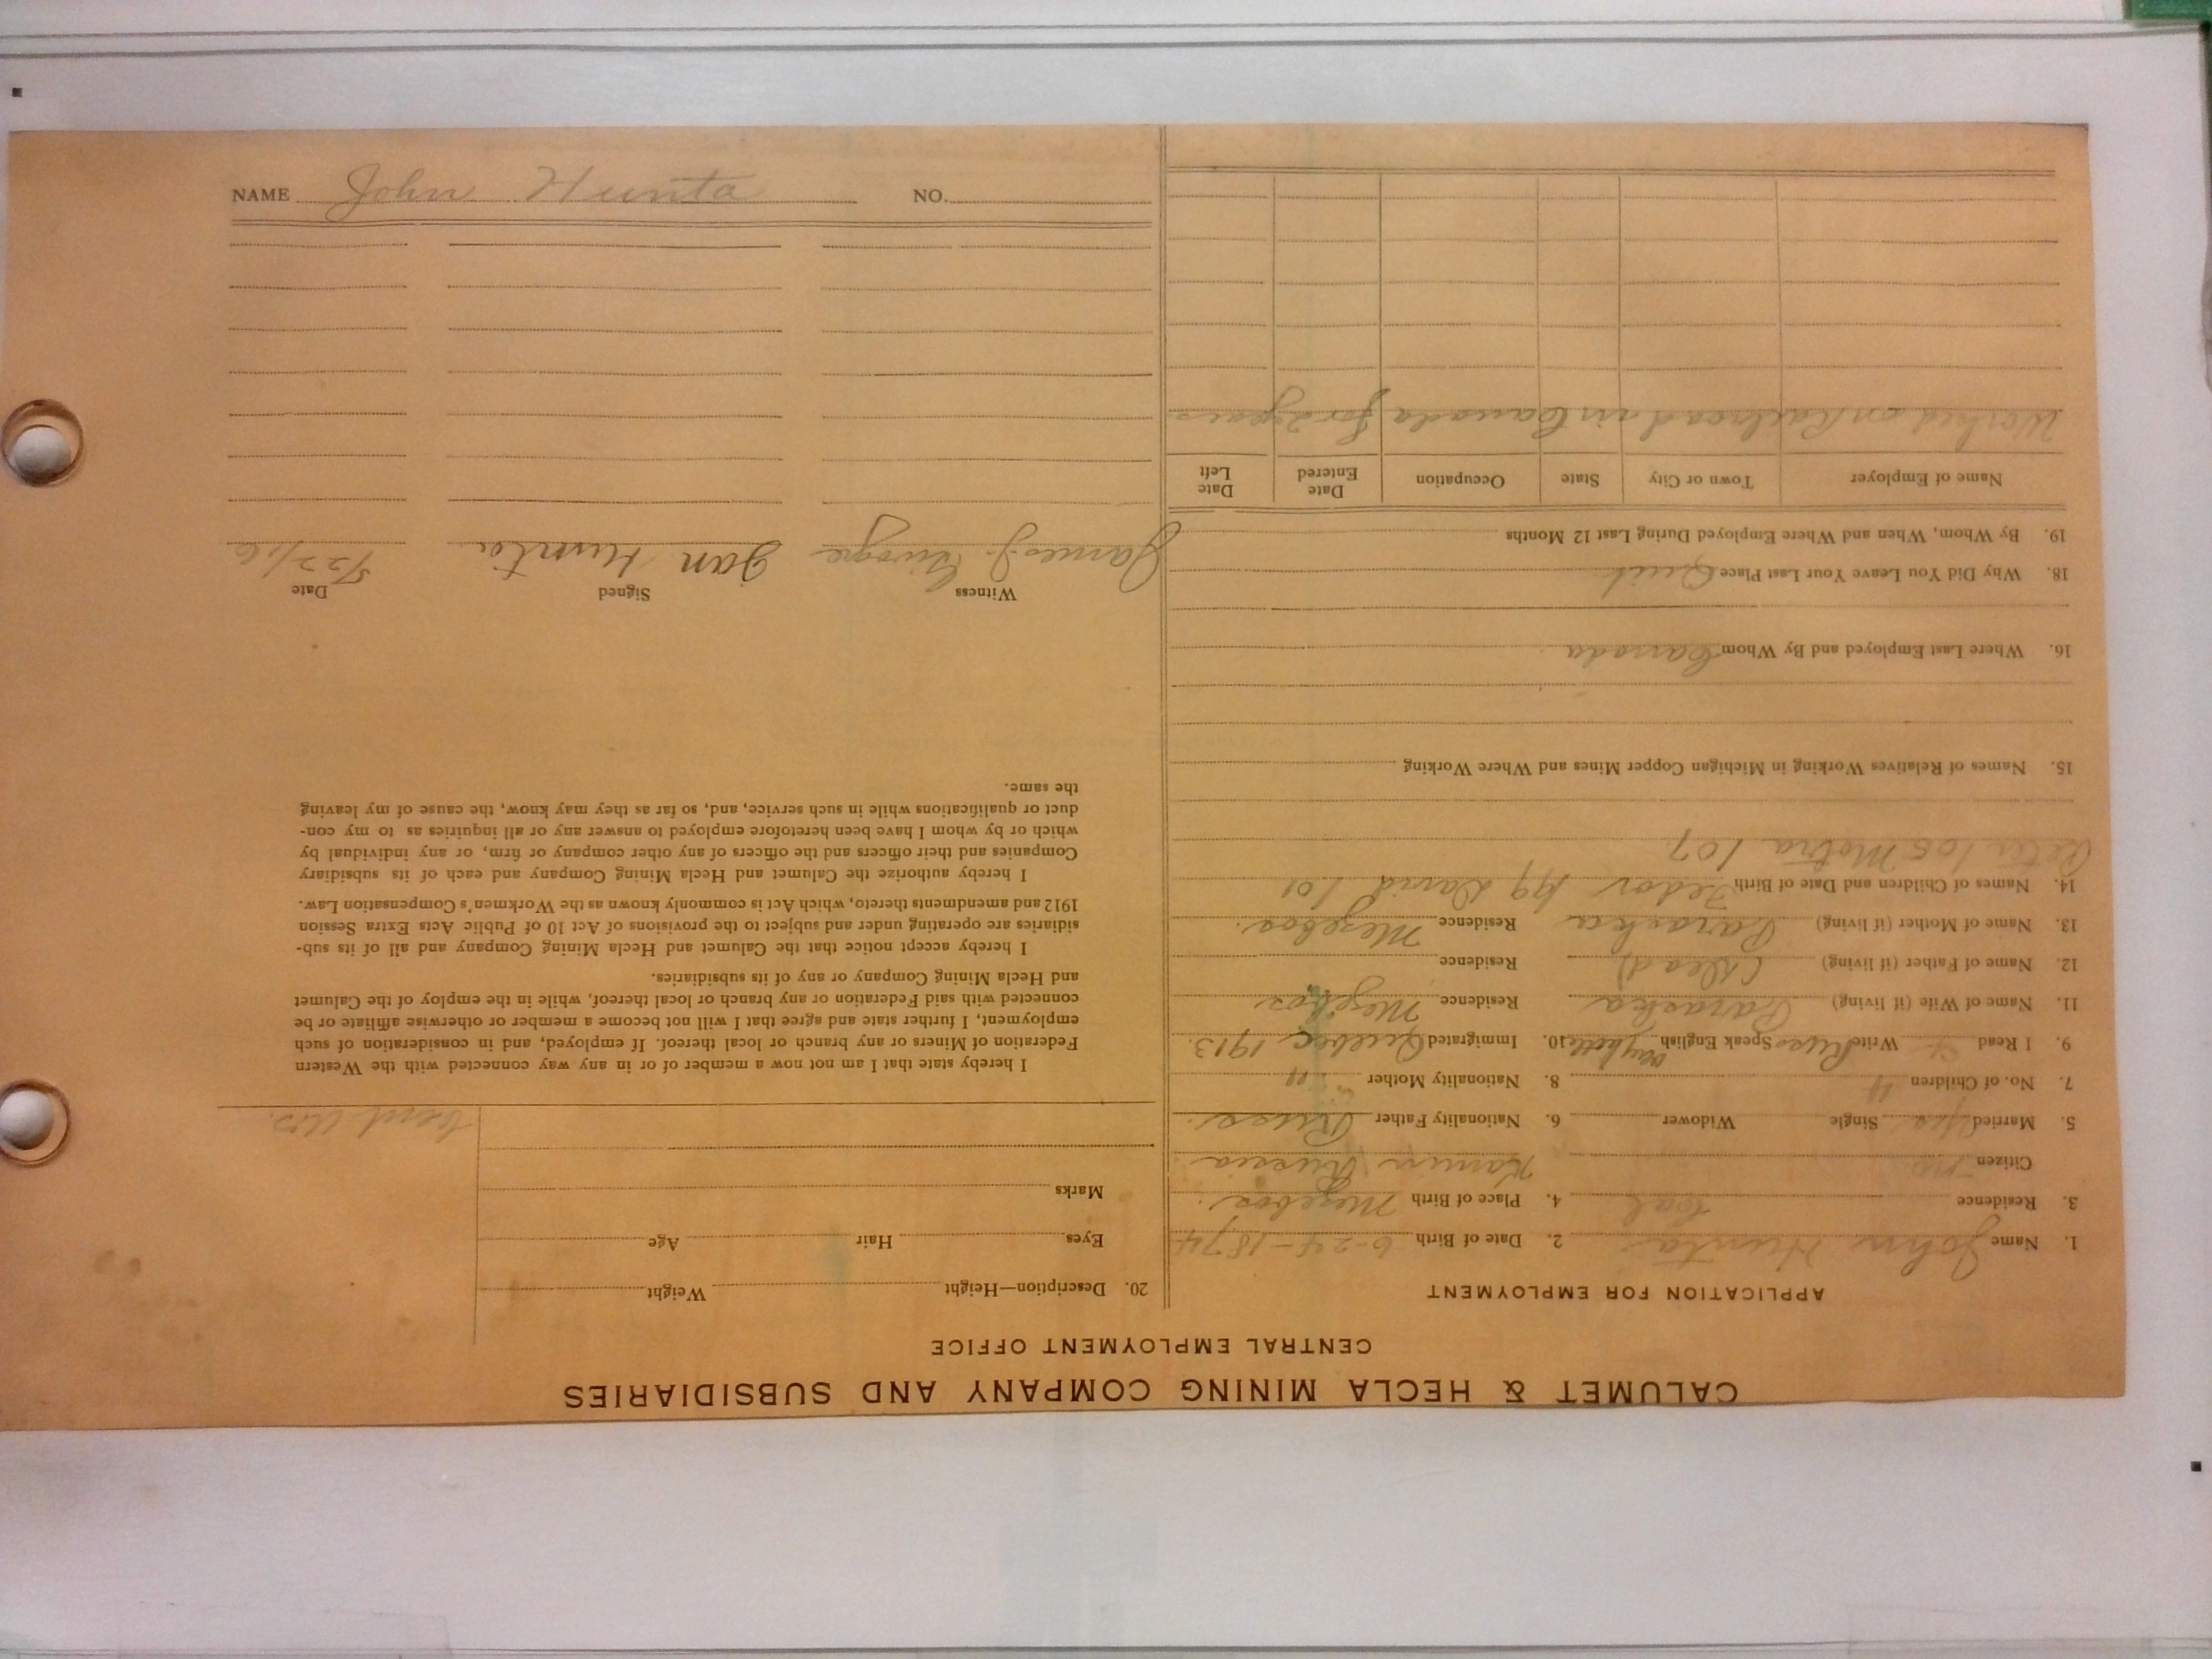 CALUMET & HECLA MINING COMPANY AND SUBSIDIARIES
CENTRAL EMPLOYMENT OFFICE
APPLICATION FOR EMPLOYMENT
1. Name John Hunta 2. Date of Birth 6-24-1874
3. Residence Cal 4. Place of Birth Mezebox.
Citizen no Russia
5. Married yes Single Widower 6. Nationality Father Russ.
7. No. of Children 4 8. Nationality Mother "
9. I Read & Write Russ Speak English very little 10. Immigrated Quebec 1913.
11. Name of Wife (if living) Paraska Residence Mezebox
12. Name of Father (if living) (Dead) Residence
13. Name of Mother (if living) Paraska Residence Mezebox.
14. Names of Children and Date of Birth Fedor 99 David 101
Peter 105 Motra 107.
15. Names of Relatives Working in Michigan Copper Mines and Where Working
16. Where Last Employed and By Whom Canada
18. Why Did You Leave Your Last Place Quit
19. By Whom, When and Where Employed During Last 12 Months
Name of Employer Town or City State Occupation Date Entered Date Left
Worked on Railroad in Canada for 2 years
20. Description—Height Weight
Eyes Hair Age
Marks
I hereby state that I am not now a member of or in any way connected with the Western
Federation of Miners or any branch or local thereof. If employed, and in consideration of such
employment, I further state and agree that I will not become a member or otherwise affiliate or be
connected with said Federation or any branch or local thereof, while in the employ of the Calumet
and Hecla Mining Company or any of its subsidiaries.
I hereby accept notice that the Calumet and Hecla Mining Company and all of its sub-
sidiaries are operating under and subject to the provisions of Act 10 of Public Acts Extra Session
1912 and amendments thereto, which Act is commonly known as the Workmen's Compensation Law.
I hereby authorize the Calumet and Hecla Mining Company and each of its subsidiary
Companies and their officers and the officers of any other company or firm, or any individual by
which or by whom I have been heretofore employed to answer any or all inquiries as to my con-
duct or qualifications while in such service, and, so far as they may know, the cause of my leaving
the same.
Witness Signed Date
James J. Jan Hunta 5/22/16
NAME John Hunta NO.